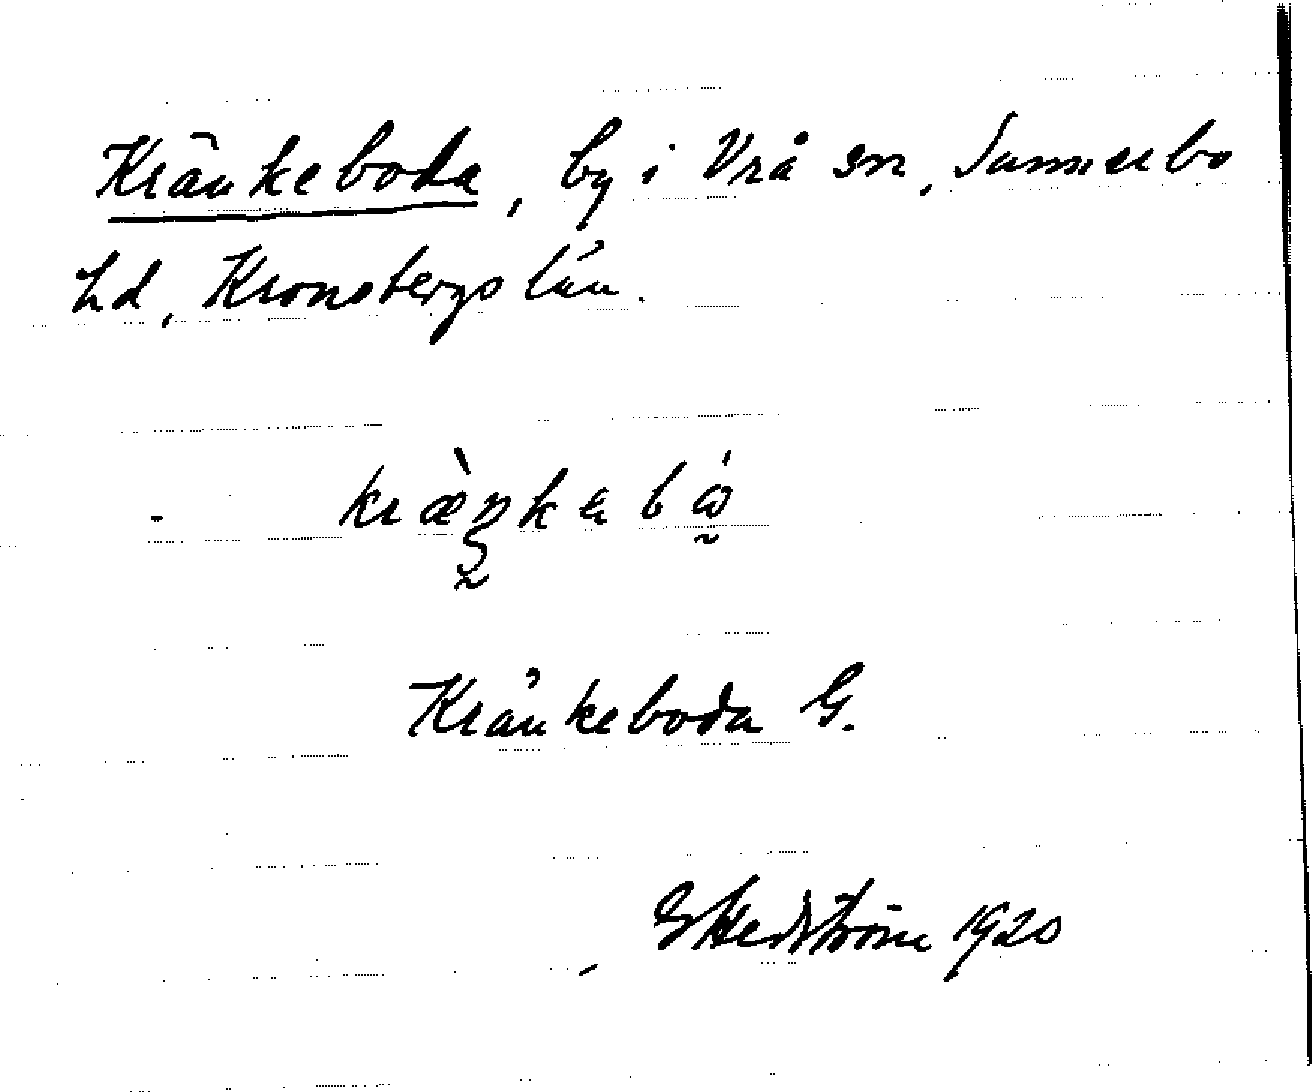 Kränkeboda, by i Vrå sn, Sunnerbo
hd, Kronobergs län.
kræ̀ŋkəbó̰
Kränkeboda G.
G Hedström 1920